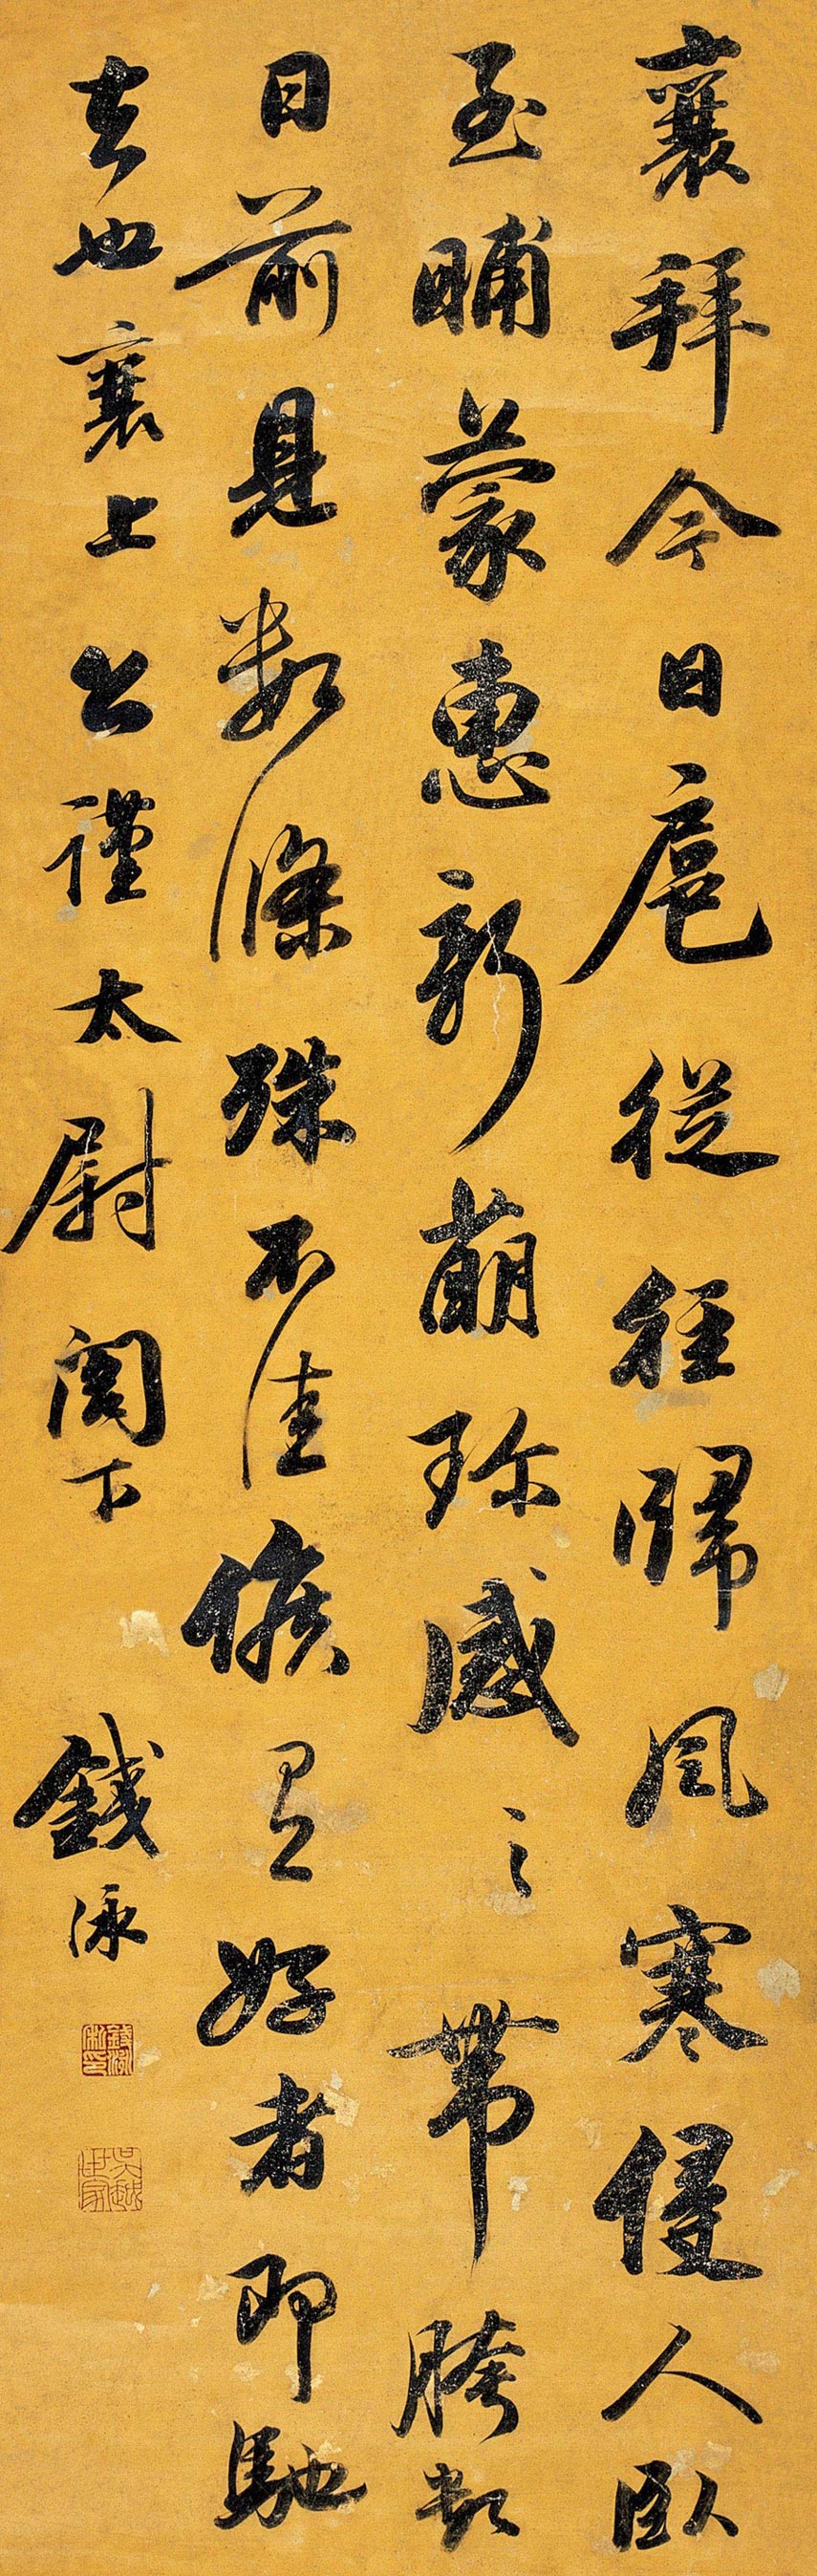 襄拜今日扈從徑歸風寒侵人臥
至晡蒙惠新萌珎感之帶胯數
日前見數條殊不佳候有好者即馳
去也襄上公謹太尉閣下
錢泳